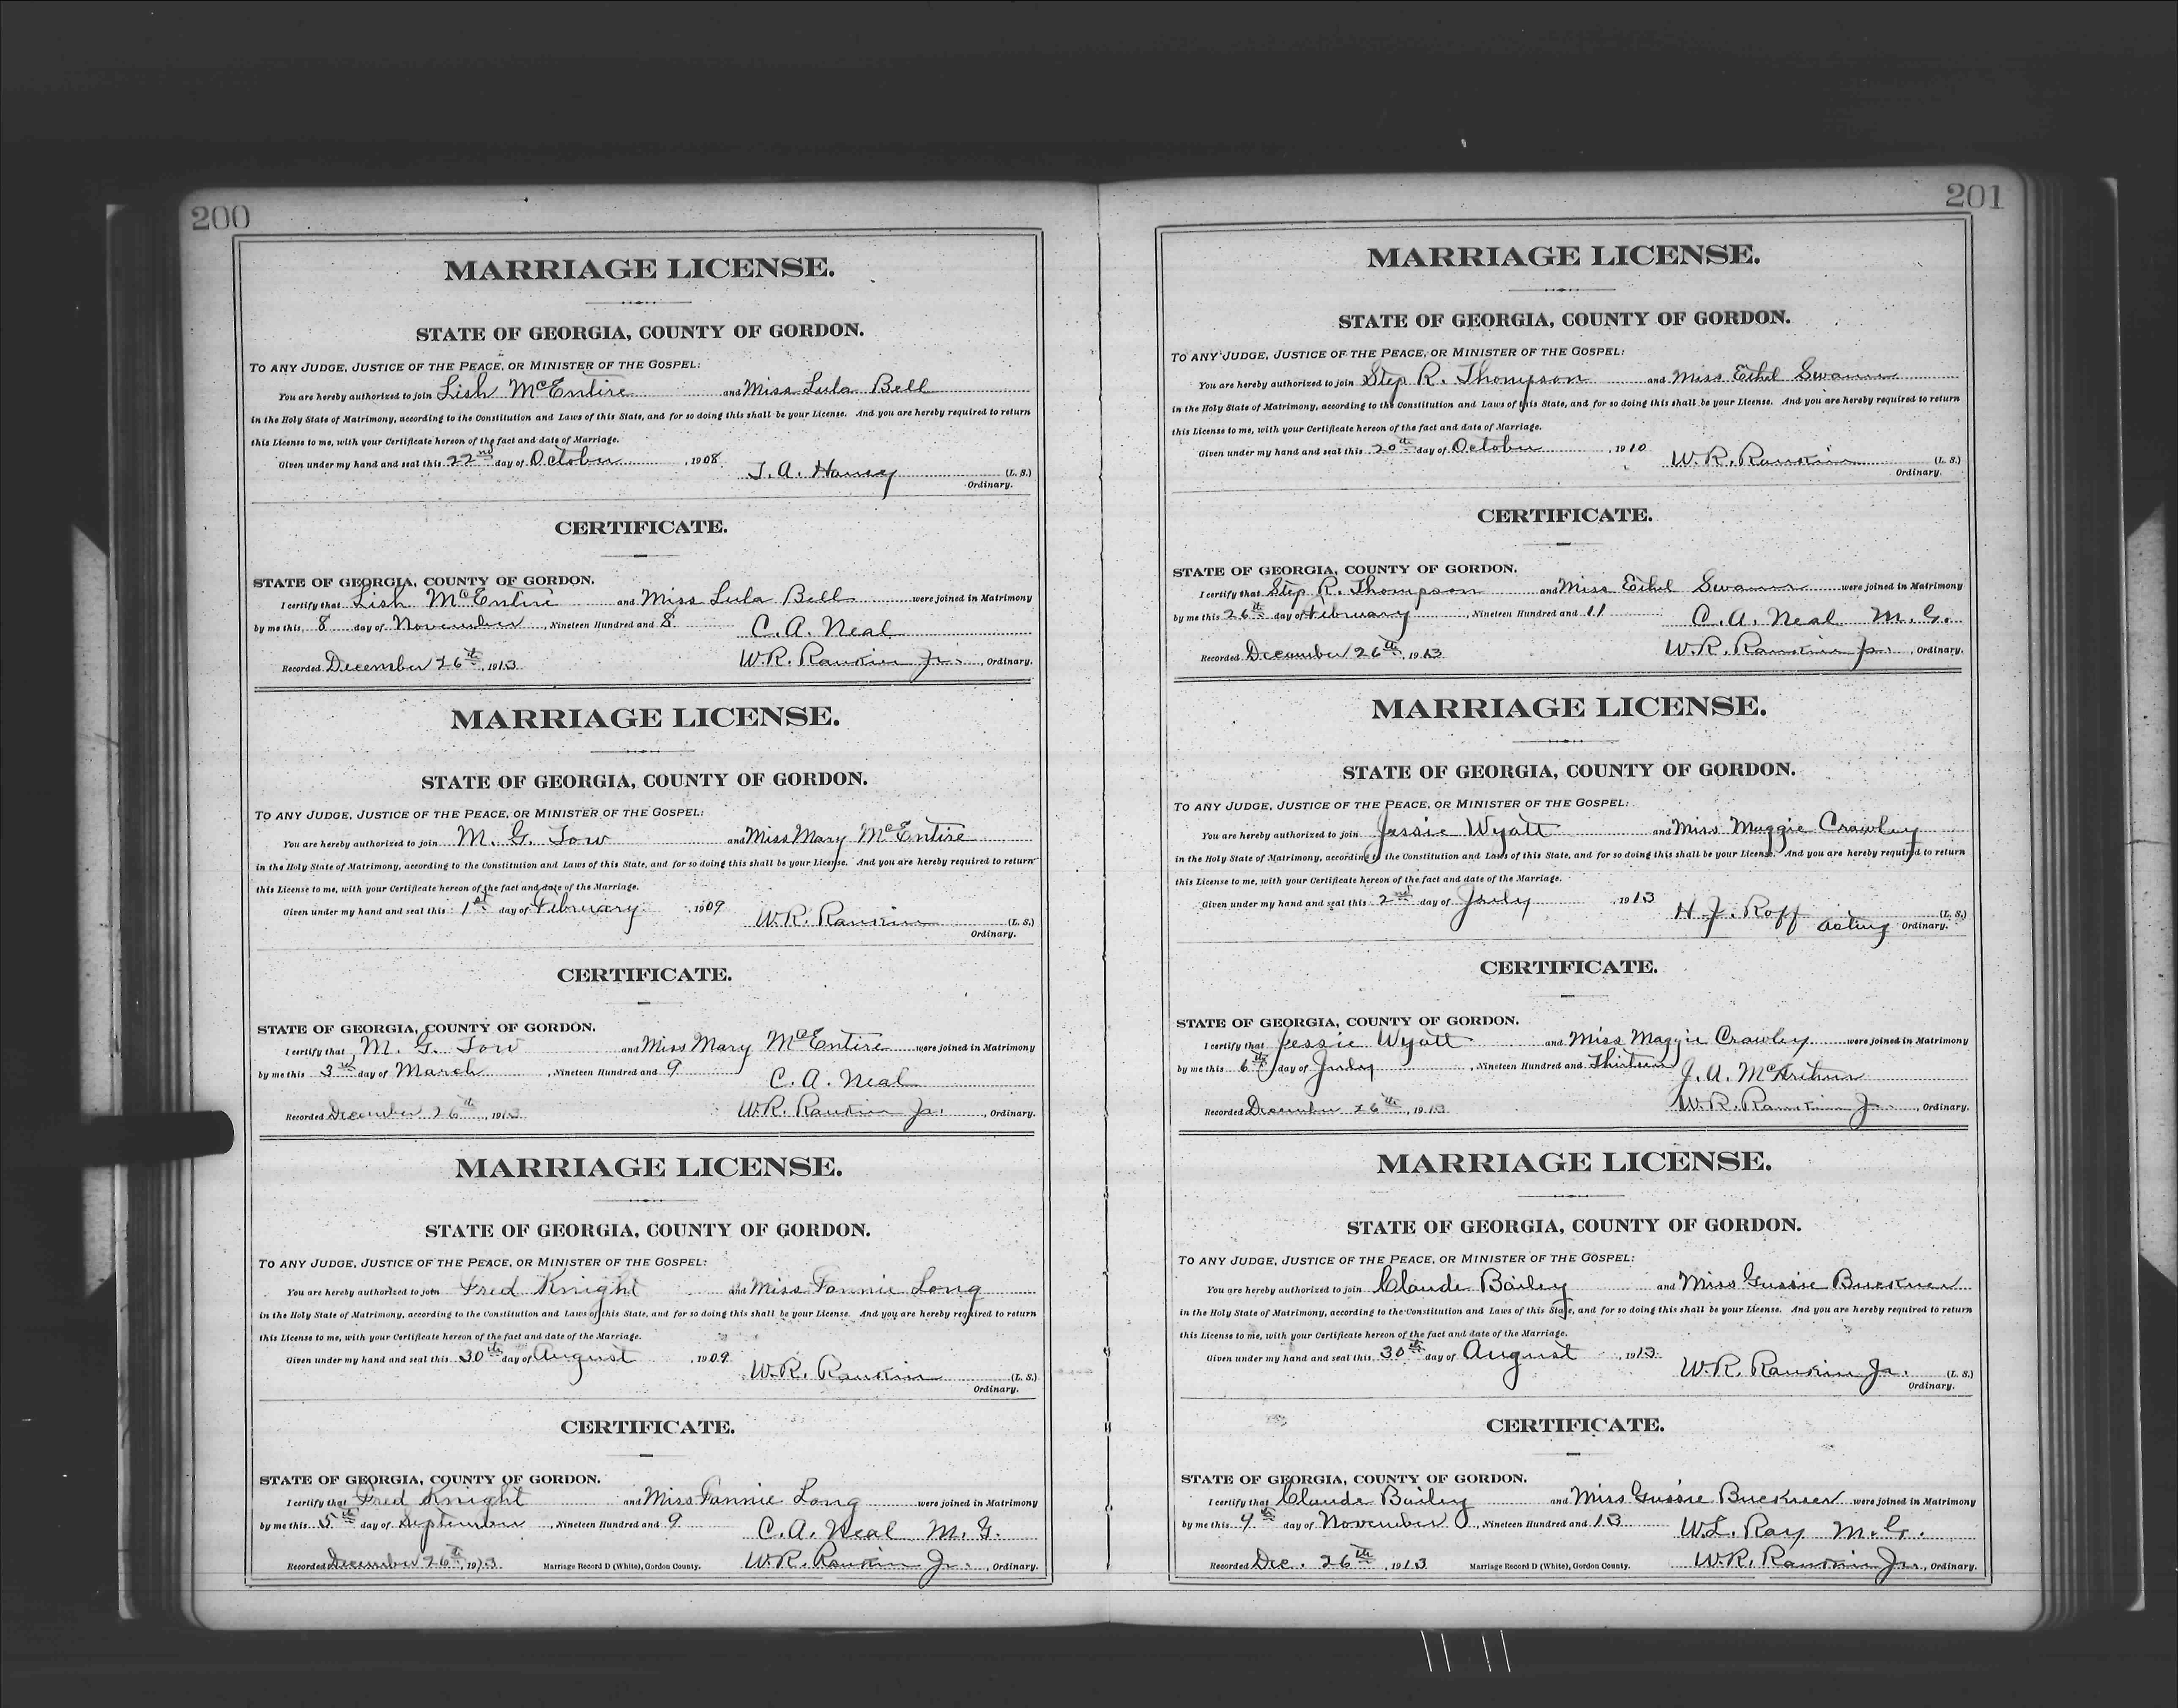 200
MARRIAGE LICENSE.
STATE OF GEORGIA, COUNTY OF GORDON.
TO ANY JUDGE, JUSTICE OF THE PEACE, OR MINISTER OF THE GOSPEL:
You are hereby authorized to join Lish McEntire and Miss Lula Bell
in the Holy State of Matrimony, according to the Constitution and Laws of this State, and for so doing this shall be your License. And you are hereby required to return
this License to me, with your Certificate hereon of the fact and date of Marriage.
Given under my hand and seal this 22nd day of October, 1908.
(L. S.)
Ordinary.
CERTIFICATE.
STATE OF GEORGIA, COUNTY OF GORDON.
I certify that Lish McEntire and Miss Lula Bell were joined in Matrimony
by me this 8 day of November, Nineteen Hundred and 8 C. A. Neal
Recorded December 26th, 1913 W. R. Rankin Jr., Ordinary.
MARRIAGE LICENSE.
STATE OF GEORGIA, COUNTY OF GORDON.
TO ANY JUDGE, JUSTICE OF THE PEACE, OR MINISTER OF THE GOSPEL:
You are hereby authorized to join M. G. Tow and Miss Mary McEntire
in the Holy State of Matrimony, according to the Constitution and Laws of this State, and for so doing this shall be your License. And you are hereby required to return
this License to me, with your Certificate hereon of the fact and date of the Marriage.
Given under my hand and seal this 1st day of February, 1909 W. R. Rankin (L. S.)
Ordinary.
CERTIFICATE.
STATE OF GEORGIA, COUNTY OF GORDON.
I certify that M. G. Tow and Miss Mary McEntire were joined in Matrimony
by me this 3rd day of March, Nineteen Hundred and 9 C. A. Neal
Recorded December 26th, 1913 W. R. Rankin Jr., Ordinary.
MARRIAGE LICENSE.
STATE OF GEORGIA, COUNTY OF GORDON.
TO ANY JUDGE, JUSTICE OF THE PEACE, OR MINISTER OF THE GOSPEL:
You are hereby authorized to join Fred Knight and Miss Fannie Long
in the Holy State of Matrimony, according to the Constitution and Laws of this State, and for so doing this shall be your License. And you are hereby required to return
this License to me, with your Certificate hereon of the fact and date of the Marriage.
Given under my hand and seal this 30th day of August, 1909. W. R. Rankin (L. S.)
Ordinary.
CERTIFICATE.
STATE OF GEORGIA, COUNTY OF GORDON.
I certify that Fred Knight and Miss Fannie Long were joined in Matrimony
by me this 5th day of September, Nineteen Hundred and 9 C. A. Neal M. G.
Recorded December 26th, 1913 Marriage Record D (White), Gordon County. W. R. Rankin Jr., Ordinary.
201
MARRIAGE LICENSE.
STATE OF GEORGIA, COUNTY OF GORDON.
TO ANY JUDGE, JUSTICE OF THE PEACE, OR MINISTER OF THE GOSPEL:
You are hereby authorized to join Step R. Thompson and Miss Ethel Swann
in the Holy State of Matrimony, according to the Constitution and Laws of this State, and for so doing this shall be your License. And you are hereby required to return
this License to me, with your Certificate hereon of the fact and date of Marriage.
Given under my hand and seal this 20th day of October, 1910 W. R. Rankin (L. S.)
Ordinary.
CERTIFICATE.
STATE OF GEORGIA, COUNTY OF GORDON.
I certify that Step R. Thompson and Miss Ethel Swann were joined in Matrimony
by me this 26th day of February, Nineteen Hundred and 11 C. A. Neal M. G.
Recorded December 26th, 1913 W. R. Rankin Jr., Ordinary.
MARRIAGE LICENSE.
STATE OF GEORGIA, COUNTY OF GORDON.
TO ANY JUDGE, JUSTICE OF THE PEACE, OR MINISTER OF THE GOSPEL:
You are hereby authorized to join Jessie Wyatt and Miss Maggie Crawley
in the Holy State of Matrimony, according to the Constitution and Laws of this State, and for so doing this shall be your License. And you are hereby required to return
this License to me, with your Certificate hereon of the fact and date of the Marriage.
Given under my hand and seal this 2nd day of July, 1913 H. J. Roff (L. S.)
Acting Ordinary.
CERTIFICATE.
STATE OF GEORGIA, COUNTY OF GORDON.
I certify that Jessie Wyatt and Miss Maggie Crawley were joined in Matrimony
by me this 6th day of July, Nineteen Hundred and Thirteen J. A. McArthur
Recorded December 26th, 1913 W. R. Rankin Jr., Ordinary.
MARRIAGE LICENSE.
STATE OF GEORGIA, COUNTY OF GORDON.
TO ANY JUDGE, JUSTICE OF THE PEACE, OR MINISTER OF THE GOSPEL:
You are hereby authorized to join Claude Bailey and Miss Gussie Buckner
in the Holy State of Matrimony, according to the Constitution and Laws of this State, and for so doing this shall be your License. And you are hereby required to return
this License to me, with your Certificate hereon of the fact and date of the Marriage.
Given under my hand and seal this 30th day of August, 1913. W. R. Rankin Jr. (L. S.)
Ordinary.
CERTIFICATE.
STATE OF GEORGIA, COUNTY OF GORDON.
I certify that Claude Bailey and Miss Gussie Buckner were joined in Matrimony
by me this 9th day of November, Nineteen Hundred and 13 W. L. Ray M. G.
Recorded Dec. 26th, 1913 Marriage Record D (White), Gordon County. W. R. Rankin Jr., Ordinary.